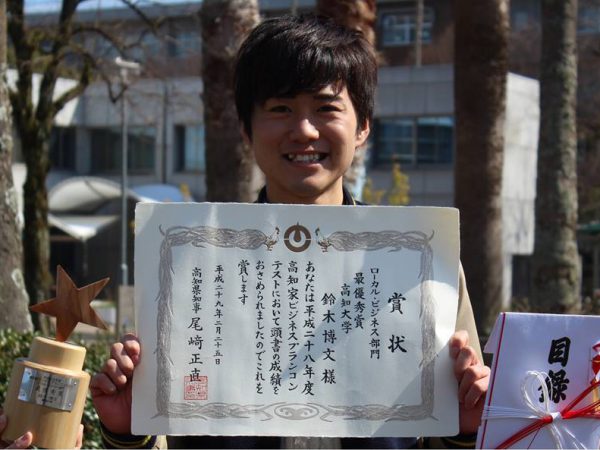 賞状
ローカル・ビジネス部門
最優秀賞
高知大学
鈴木博文様
あなたは平成二十八年度
高知家ビジネスプランコン
テストにおいて頭書の成績を
おさめられましたのでこれを
賞します
平成二十九年二月二十五日
高知県知事 尾﨑正直
目録